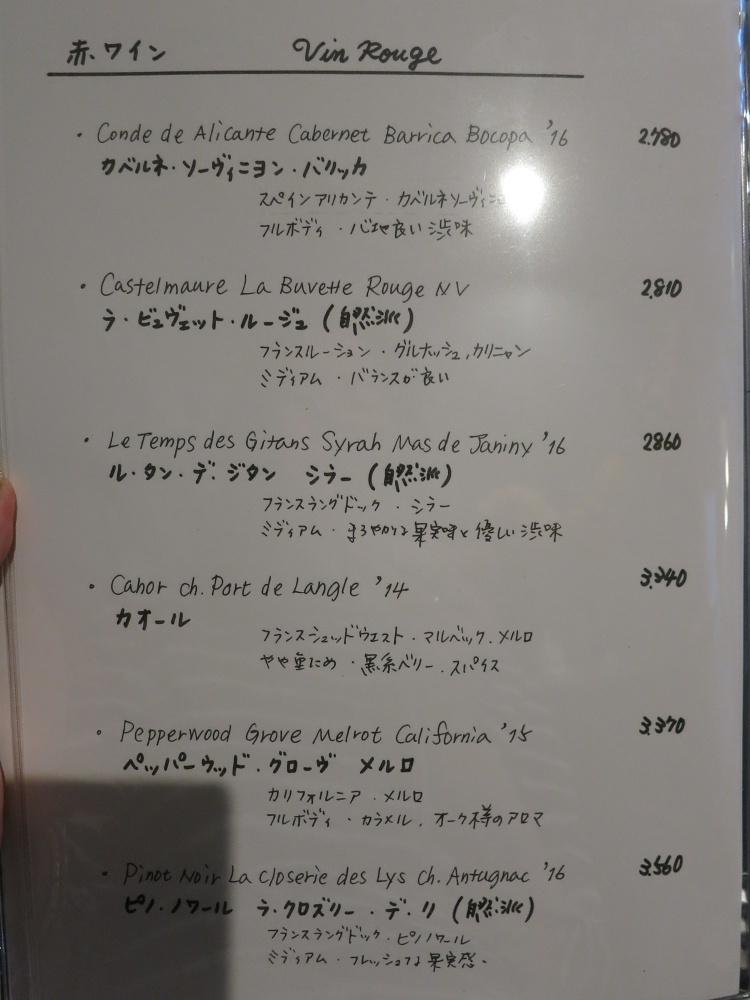 赤ワイン Vin Rouge
・ Conde de Alicante Cabernet Barrica Bocopa '16 2.780
カベルネ・ソーヴィニヨン・バリッカ
スペインアリカンテ・カベルネソーヴィニ
フルボディ・心地良い渋味
・ Castelmaure La Buvette Rouge NV 2.810
ラ・ビュヴェット・ルージュ (自然派)
フランスルーション・グルナッシュ,カリニャン
ミディアム・バランスが良い
・ Le Temps des Gitans Syrah Mas de Janiny '16 2860
ル・タン・デ・ジタン シラー (自然派)
フランスラングドック・シラー
ミディアム・まろやかな果実味と優しい渋味
・ Cahor ch. Port de Langle '14 3.240
カオール
フランスシュッドウエスト・マルベック.メルロ
やや重ため・黒系ベリー.スパイス
・ Pepperwood Grove Melrot California '15 3.370
ペッパーウッド・グローヴ メルロ
カリフォルニア・メルロ
フルボディ・カラメル.オーク樽のアロマ
・ Pinot Noir La Closerie des Lys ch. Antugnac '16 3.560
ピノ・ノワール ラ・クロズリー・デ・リ (自然派)
フランスラングドック・ピノノワール
ミディアム・フレッシュな果実感・